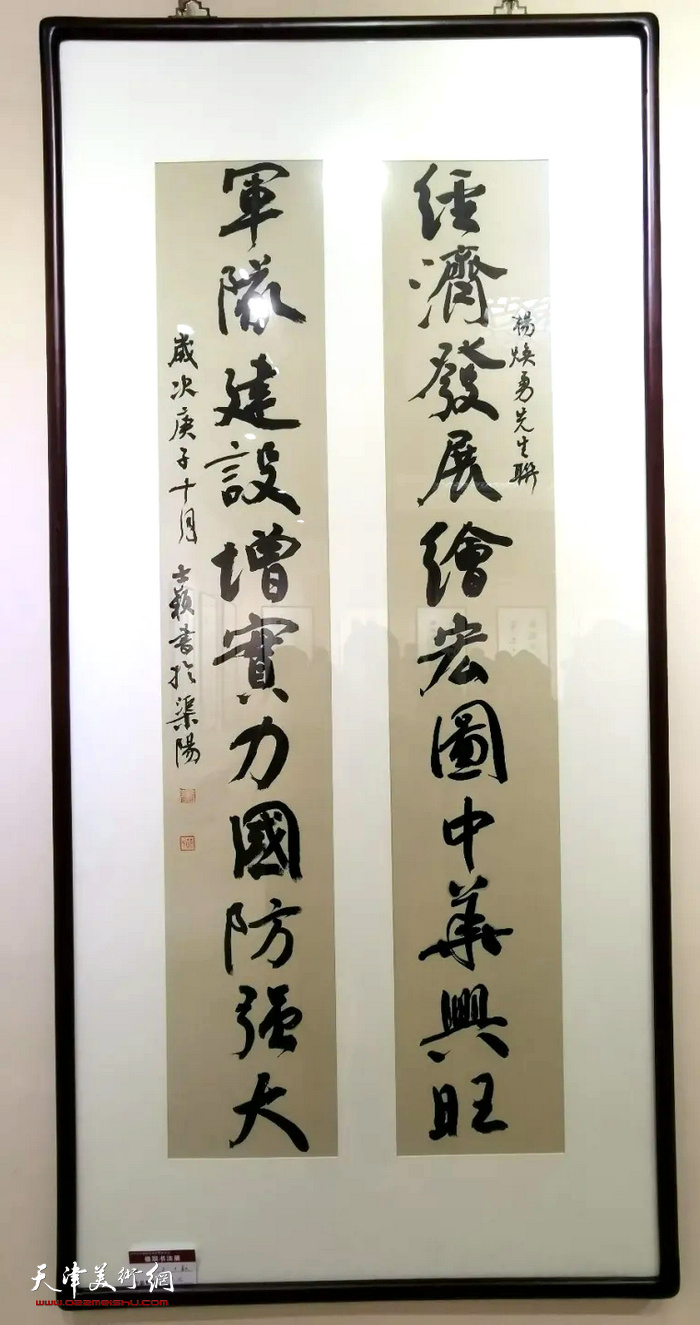 經濟發展繪宏圖中華興旺
楊煥勇先生聯
軍隊建設增實力國防强大
歲次庚子十月士穎書於渠陽
楹联书法展
天津美術網
www.022meishu.com